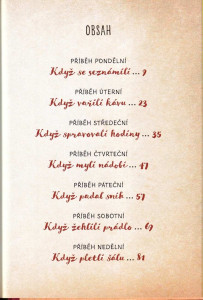 OBSAH
PŘÍBĚH PONDĚLNÍ
Když se seznámili ... 9
PŘÍBĚH ÚTERNÍ
Když vařili kávu ... 23
PŘÍBĚH STŘEDEČNÍ
Když spravovali hodiny ... 35
PŘÍBĚH ČTVRTEČNÍ
Když myli nádobí ... 47
PŘÍBĚH PÁTEČNÍ
Když padal sníh ... 57
PŘÍBĚH SOBOTNÍ
Když žehlili prádlo ... 69
PŘÍBĚH NEDĚLNÍ
Když pletli šálu ... 81